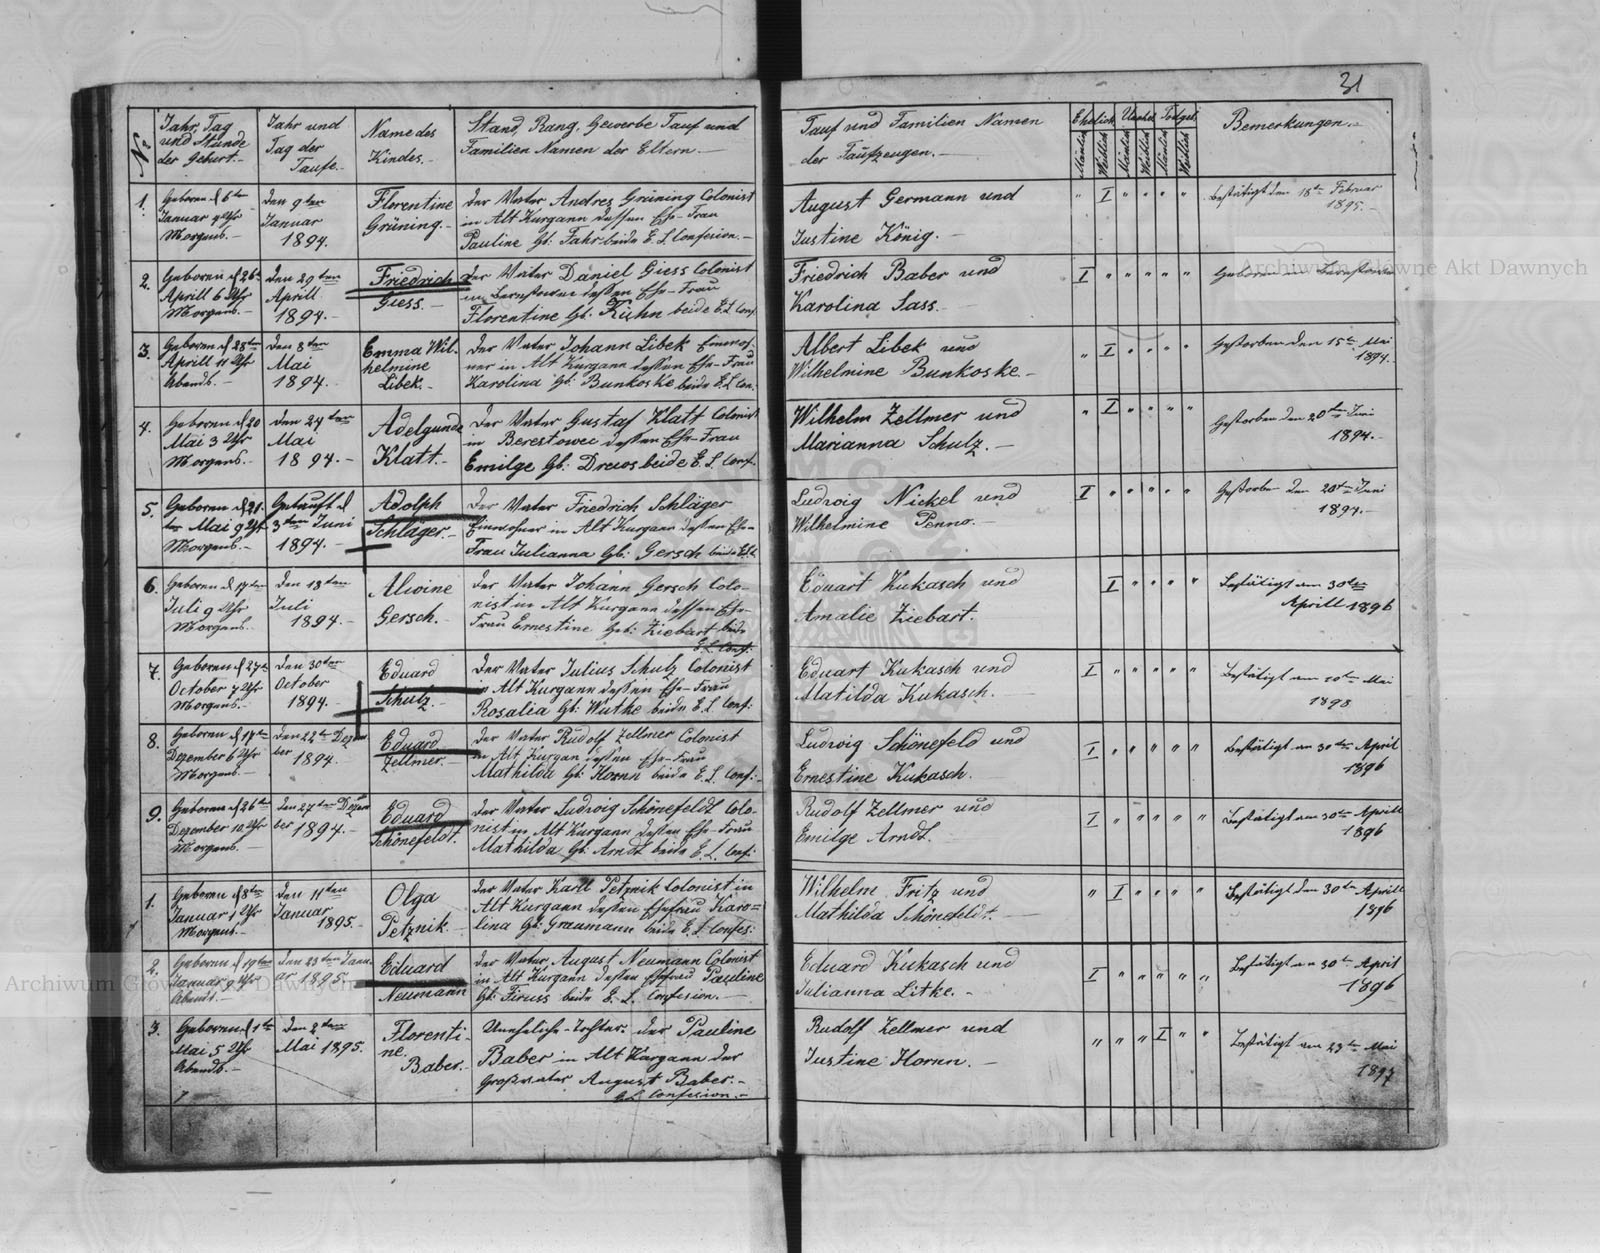 31
No
Jahr, Tag
und Stunde
der Geburt.
Jahr und
Tag der
Taufe.
Name des
Kindes.
Stand, Rang, Gewerbe Tauf und
Familien Namen der Eltern.
Tauf und Familien Namen
der Taufzeugen.
Ehelich Unehel Todgeb
Mänlich Weiblich Mänlich Weiblich Mänlich Weiblich
Bemerkungen.
1.
Geboren d 6ten
Januar 9 Uhr
Morgens.
den 9ten
Januar
1894.
Florentine
Grüning.
der Vater Andres Grüning Colonist
in Alt Kurgann dessen Ehe-Frau
Pauline Gb: Fahr beide E. L. Confesion.
August Germann und
Justine König.
" I " " " "
Bestätigt den 18ten Februar
1895.
2.
Geboren d 26ten
Aprill 6 Uhr
Morgens.
den 29ten
Aprill
1894.
Friedrich
Giess.
der Vater Daniel Giess Colonist
in dessen Ehe-Frau
Florentine Gb: Kuhn beide E. L. Conf.
Friedrich Baber und
Karolina Sass.
I " " " " "
Geboren
3.
Geboren d 28ten
Aprill 11 Uhr
Abends.
den 8ten
Mai
1894.
Emma Wil-
helmine
Libek.
der Vater Johann Libek Einwoh-
ner in Alt Kurgann dessen Ehe-Frau
Karolina Gb: Bunkoske beide E. L. Con.
Albert Libek und
Wilhelmine Bunkoske.
" I " " " "
Gestorben den 15ten Mai
1894.
4.
Geboren d 20
Mai 3 Uhr
Morgens.
den 24ten
Mai
1894.
Adelgunde
Klatt.
Der Vater Gustaf Klatt Colonist
in Berestowec dessen Ehe-Frau
Emilge Gb: Drews beide E. L. Conf.
Wilhelm Zellmer und
Marianna Schulz.
" I " " " "
Gestorben den 20ten Juni
1894.
5.
Geboren d 21.
ten Mai 9 Uhr
Morgens.
Getauft d
3ten Juni
1894.
Adolph
Schläger.
Der Vater Friedrich Schläger
Einwohner in Alt Kurgann dessen Ehe-
Frau Julianna Gb: Gersch beide E. L.
Ludwig Nickel und
Wilhelmine Penno.
I " " " " "
Gestorben den 20ten Juni
1894.
6.
Geboren d 17ten
Juli 9 Uhr
Morgens.
den 18ten
Juli
1894.
Alwine
Gersch.
der Vater Johann Gersch Colo-
nist in Alt Kurgann dessen Ehe-
Frau Ernestine Geb: Ziebart beide
E. L. Conf:
Eduart Kukasch und
Amalie Ziebart.
I " " " "
Bestätigt am 30ten
Aprill 1896
7.
Geboren d 27ten
October 7 Uhr
Morgens.
den 30ten
October
1894.
Eduard
Schulz.
Der Vater Julius Schulz Colonist
in Alt Kurgann dessen Ehe-Frau
Rosalia Gb: Wuthe beide E. L. Conf:
Eduart Kukasch und
Matilda Kukasch.
I " " " " "
Bestätigt am 10ten Mai
8.
Geboren d 17ten
Dezember 6 Uhr
Morgens.
den 22ten Dezem
ber 1894.
Eduard
Zellmer.
der Vater Rudolf Zellmer Colonist
in Alt Kurgan dessen Ehe-Frau
Mathilda Gb: Hornn beide E. L. Conf:
Ludwig Schönefeld und
Ernestine Kukasch.
I " " " " "
Bestätigt am 30ten April
1896
9.
Geboren d 26ten
Dezember 10 Uhr
Morgens.
den 27ten Dezem
ber 1894.
Eduard
Schönefeldt.
der Vater Ludwig Schönefeldt Colo-
nist in Alt Kurgann dessen Ehe-Frau
Mathilda Gb: Arndt beide E. L. Conf:
Rudolf Zellmer und
Emilge Arndt.
I " " " " "
Bestätigt am 30ten Aprill
1896
1.
Geboren d 8ten
Januar 1 Uhr
Morgens.
den 11ten
Januar
1895.
Olga
Petznik.
der Vater Karll Petznik Colonist in
Alt Kurgann dessen Ehefrau Karo=
lina Gb: Graumann beide E. L. Confes:
Wilhelm Fritz und
Mathilda Schönefeldt.
" I " " " "
Bestätigt den 30ten Aprill
1896
2.
Geboren d 19ten
Januar 9 Uhr
Abends.
den 23ten Janu
ar 1895.
Eduard
Neumann
der Vater August Neumann Colonist
in Alt Kurgann dessen Ehefrau Pauline
Gb: Firuss beide E. L. Confesion.
Eduard Kukasch und
Julianna Litke.
I " " " " "
Bestätigt am 30ten April
1896
3.
Geboren d 1ten
Mai 5 Uhr
Abends.
den 2ten
Mai 1895.
Florenti-
ne
Baber.
Uneheliche Tochter der Pauline
Baber in Alt Kurgann der
Großvater August Baber.
E. L. Confesion.
Rudolf Zellmer und
Justine Hornn.
" " " I " "
Bestätigt am 23ten Mai
1897
Archiwum Główne Akt Dawnych
Archiwum Główne Akt Dawnych